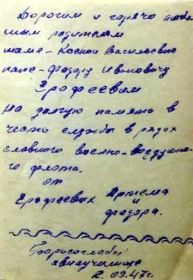 Дорогим и горячо люби
мым родителям
маме - Ксении Васильевне
папе - Федору Ивановичу
Ерофеевым
На долгую память в
честь службы в рядах
славного военно-воздушно-
го флота.
от
Ерофеевых Артема
и Федора.
Борисоглебск
авиаучилище
2.09.47г.